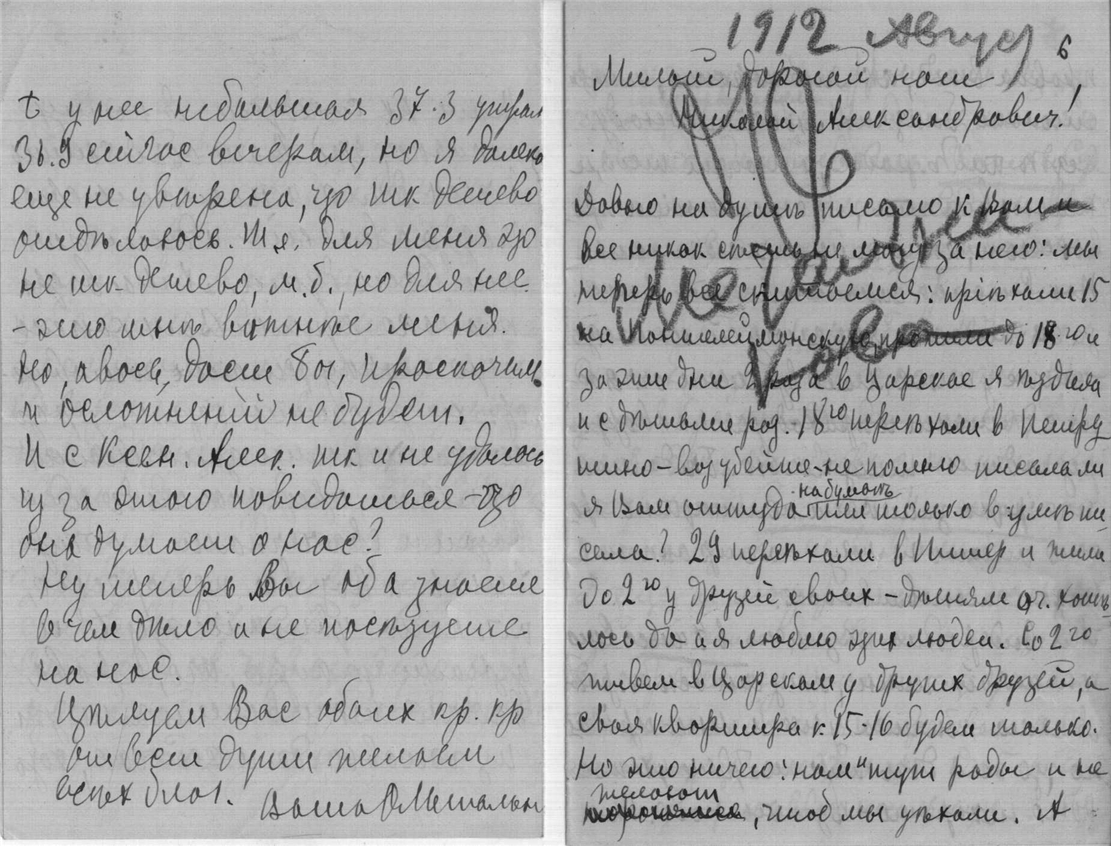 t у нее небольшая 37.3 утром
36.9 сейчас вечером, но я далеко
еще не уверена, что так дешево
отделаюсь. Т.е. для меня это
не так дешево, м.б., но для нее
- это мнѣ важнѣе меня.
Но, авось, даст Бог, проскочим
и осложнений не будет.
И с Ксен. Алек. так и не удалось
из за этого повидаться - что
она думает о нас?
Ну теперь Вы оба знаете
в чем дѣло и не посѣтуете
на нас.
Цѣлуем Вас обоих кр. кр
от всей души желаем
всех благ.
Ваша О
1912 Август
6
Милый, дорогой наш
Николай Александрович!
Давно на душѣ письмо к Вам и
все никак сѣсть не могу за него: мы
теперь все скитаемся: приѣхали 15
на Пантелеймонскую, прожили до 18го и
за эти дни 2 раза в Царское я ѣздила
и с дѣтьми раз. 18го переѣхали в Петру
шино - вот убейте - не помню писала ли
я Вам оттуда на бумагѣ или только в умѣ пи
сала? 29 переѣхали в Питер и жили
до 2го у друзей своих - дѣтям оч. хотѣ
лось да и я люблю этих людей. Со 2го
живем в Царском у других друзей, а
своя квартира к 15-16 будет только.
Но это ничего: нам и тут рады и не
желают, чтоб мы уѣхали. А